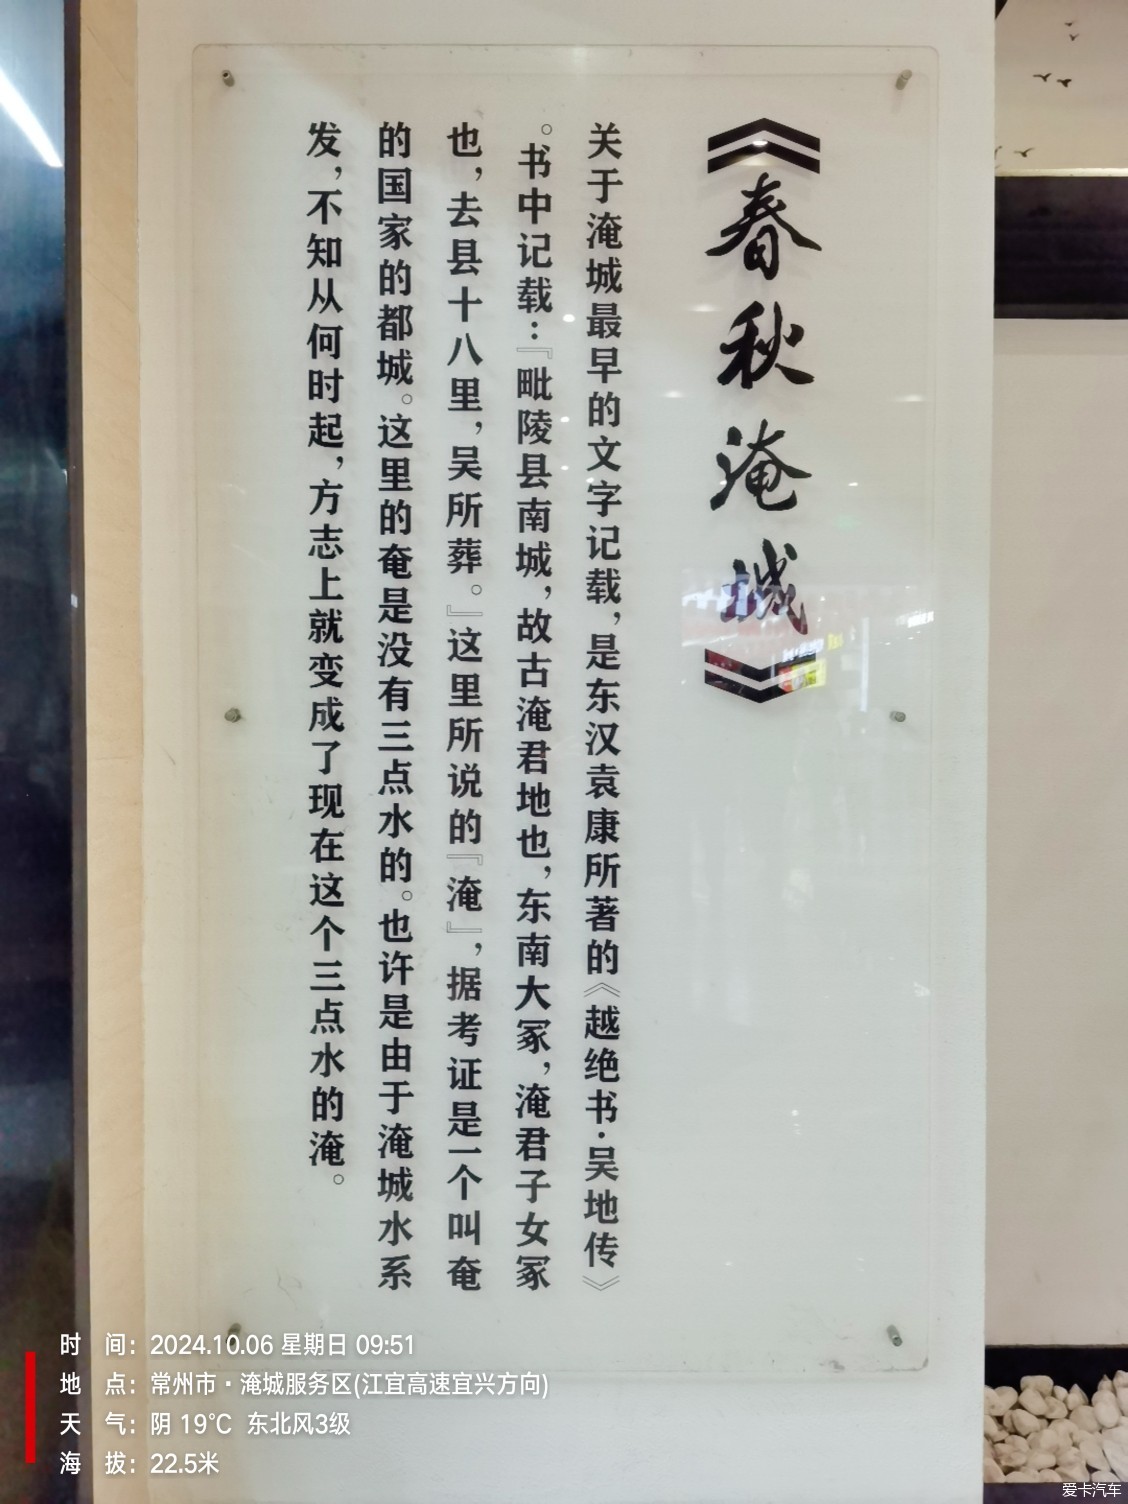 《春秋淹城》
关于淹城最早的文字记载，是东汉袁康所著的《越绝书·吴地传》
。书中记载：『毗陵县南城，故古淹君地也，东南大冢，淹君子女冢
也，去县十八里，吴所葬。』这里所说的『淹』，据考证是一个叫奄
的国家的都城。这里的奄是没有三点水的。也许是由于淹城水系
发，不知从何时起，方志上就变成了现在这个三点水的淹。
时 间：2024.10.06 星期日 09:51
地 点：常州市·淹城服务区(江宜高速宜兴方向)
天 气：阴 19℃ 东北风3级
海 拔：22.5米
爱卡汽车